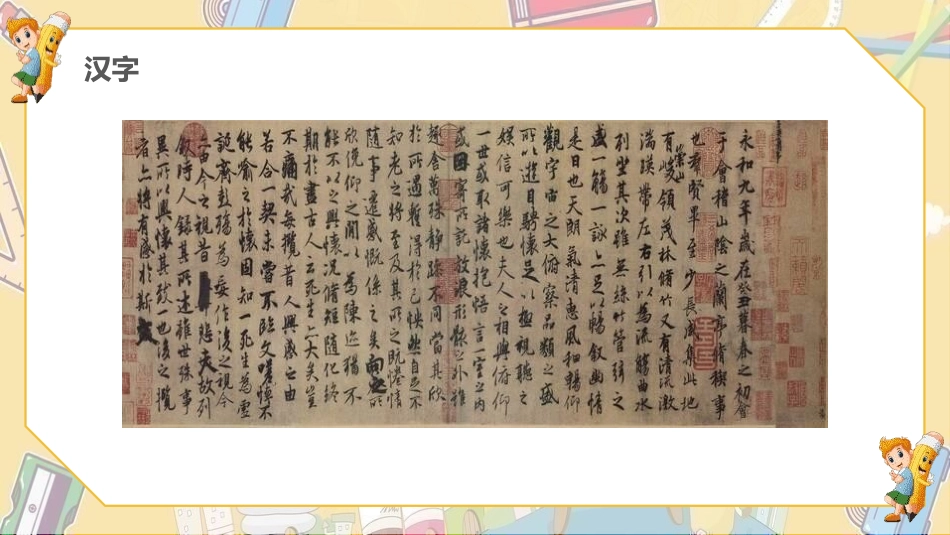 汉字
永和九年歲在癸丑暮春之初會
于會稽山陰之蘭亭脩稧事
也羣賢畢至少長咸集此地
有崇山峻領茂林脩竹又有清流激
湍暎帶左右引以為流觴曲水
列坐其次雖無絲竹管弦之
盛一觴一詠亦足以暢叙幽情
是日也天朗氣清惠風和暢仰
觀宇宙之大俯察品類之盛
所以遊目騁懷足以極視聽之
娛信可樂也夫人之相與俯仰
一世或取諸懷抱悟言一室之內
或因寄所託放浪形骸之外雖
趣舍萬殊靜躁不同當其欣
於所遇蹔得於己怏然自足不
知老之將至及其所之既惓情
隨事遷感慨係之矣向之所
欣俛仰之閒以為陳迹猶不
能不以之興懷況脩短隨化終
期於盡古人云死生亦大矣豈
不痛哉每攬昔人興感之由
若合一契未嘗不臨文嗟悼不
能喻之於懷固知一死生為虛
誕齊彭殤為妄作後之視今
亦由今之視昔悲夫故列
敘時人錄其所述雖世殊事
異所以興懷其致一也後之攬
者亦將有感於斯文